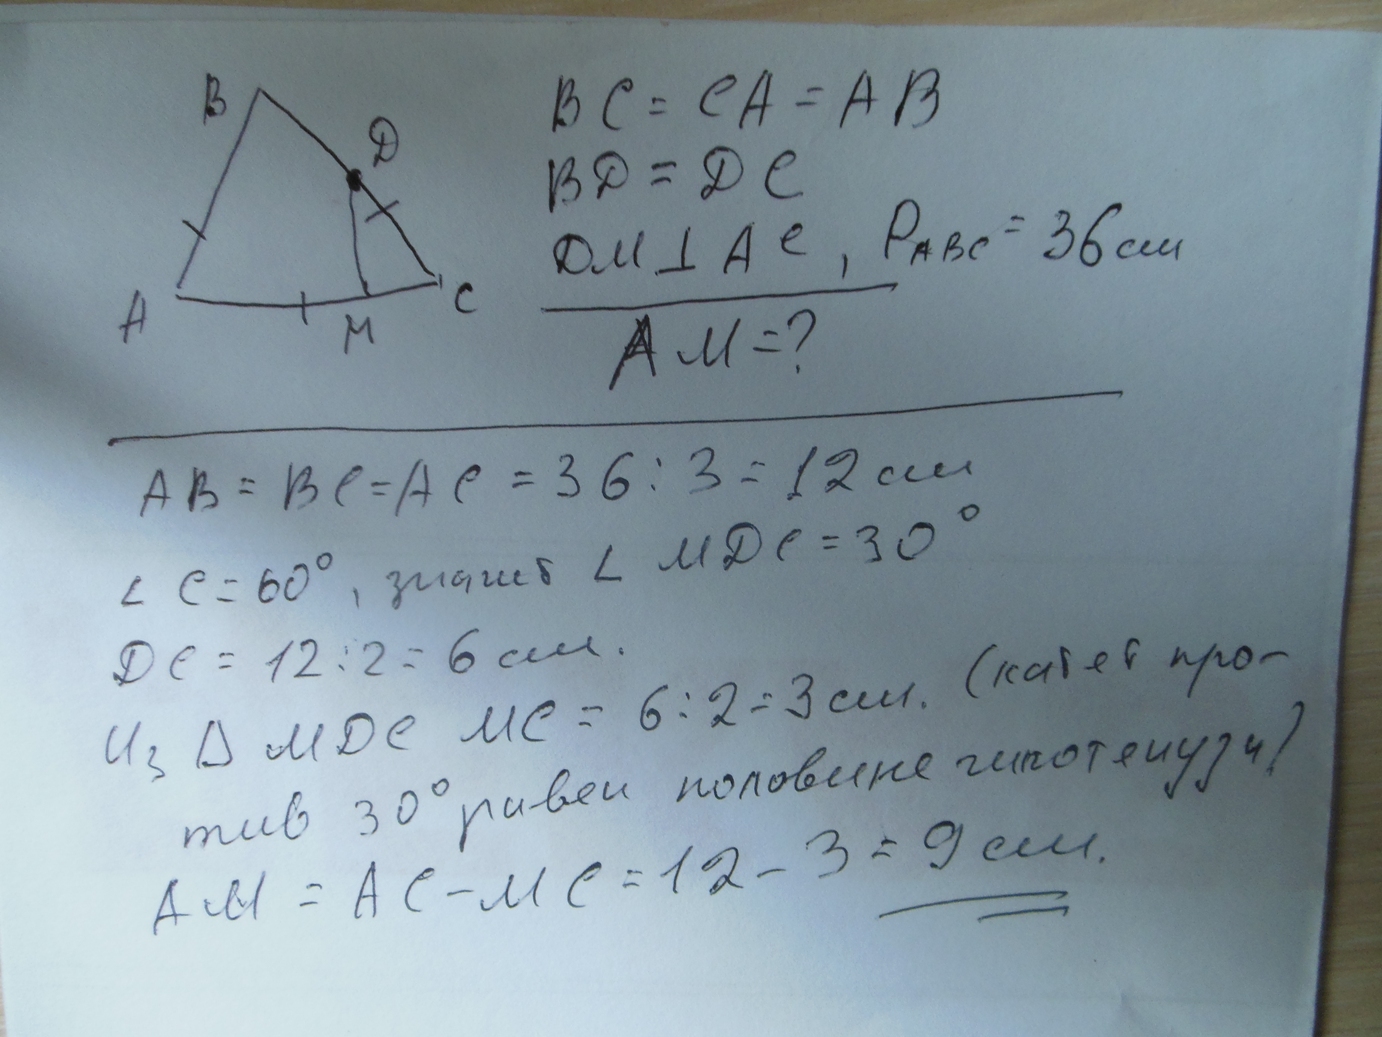 B
D
A
M
C
BC = CA = AB
BD = DC
DM ⊥ AC, PABC = 36 см
AM = ?
AB = BC = AC = 36 : 3 = 12 см
∠ C = 60°, значит ∠ MDC = 30°
DC = 12 : 2 = 6 см.
Из Δ MDC MC = 6 : 2 = 3 см. (катет про-
тив 30° равен половине гипотенузы)
AM = AC - MC = 12 - 3 = 9 см.